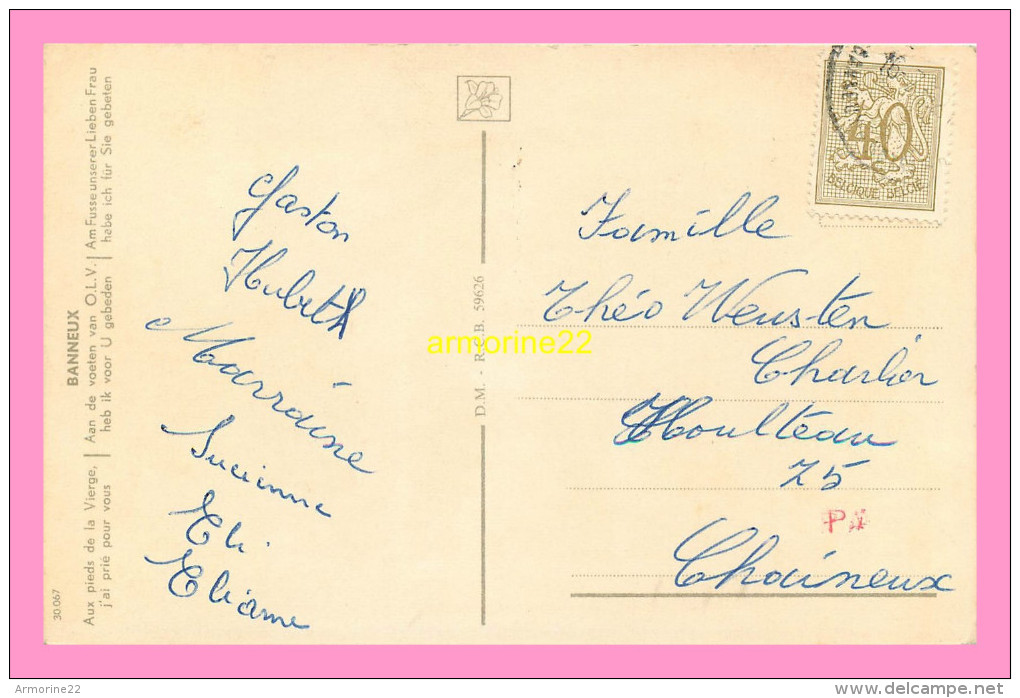 BANNEUX
Aux pieds de la Vierge,
j'ai prié pour vous
Aan de voeten van O.L.V.
heb ik voor U gebeden
Am Fusse unserer Lieben Frau
habe ich für Sie gebeten
30.067
Gaston
Huberth
Marraine
Suzanne
Eli
Eliane
D.M. - R.C.B. 59626
armorine22
40
BELGIQUE-BELGIE
Famille
Théo Wensten
Charlier
Houlteau
75
Chaineux
Armorine22
http://www.delcampe.net